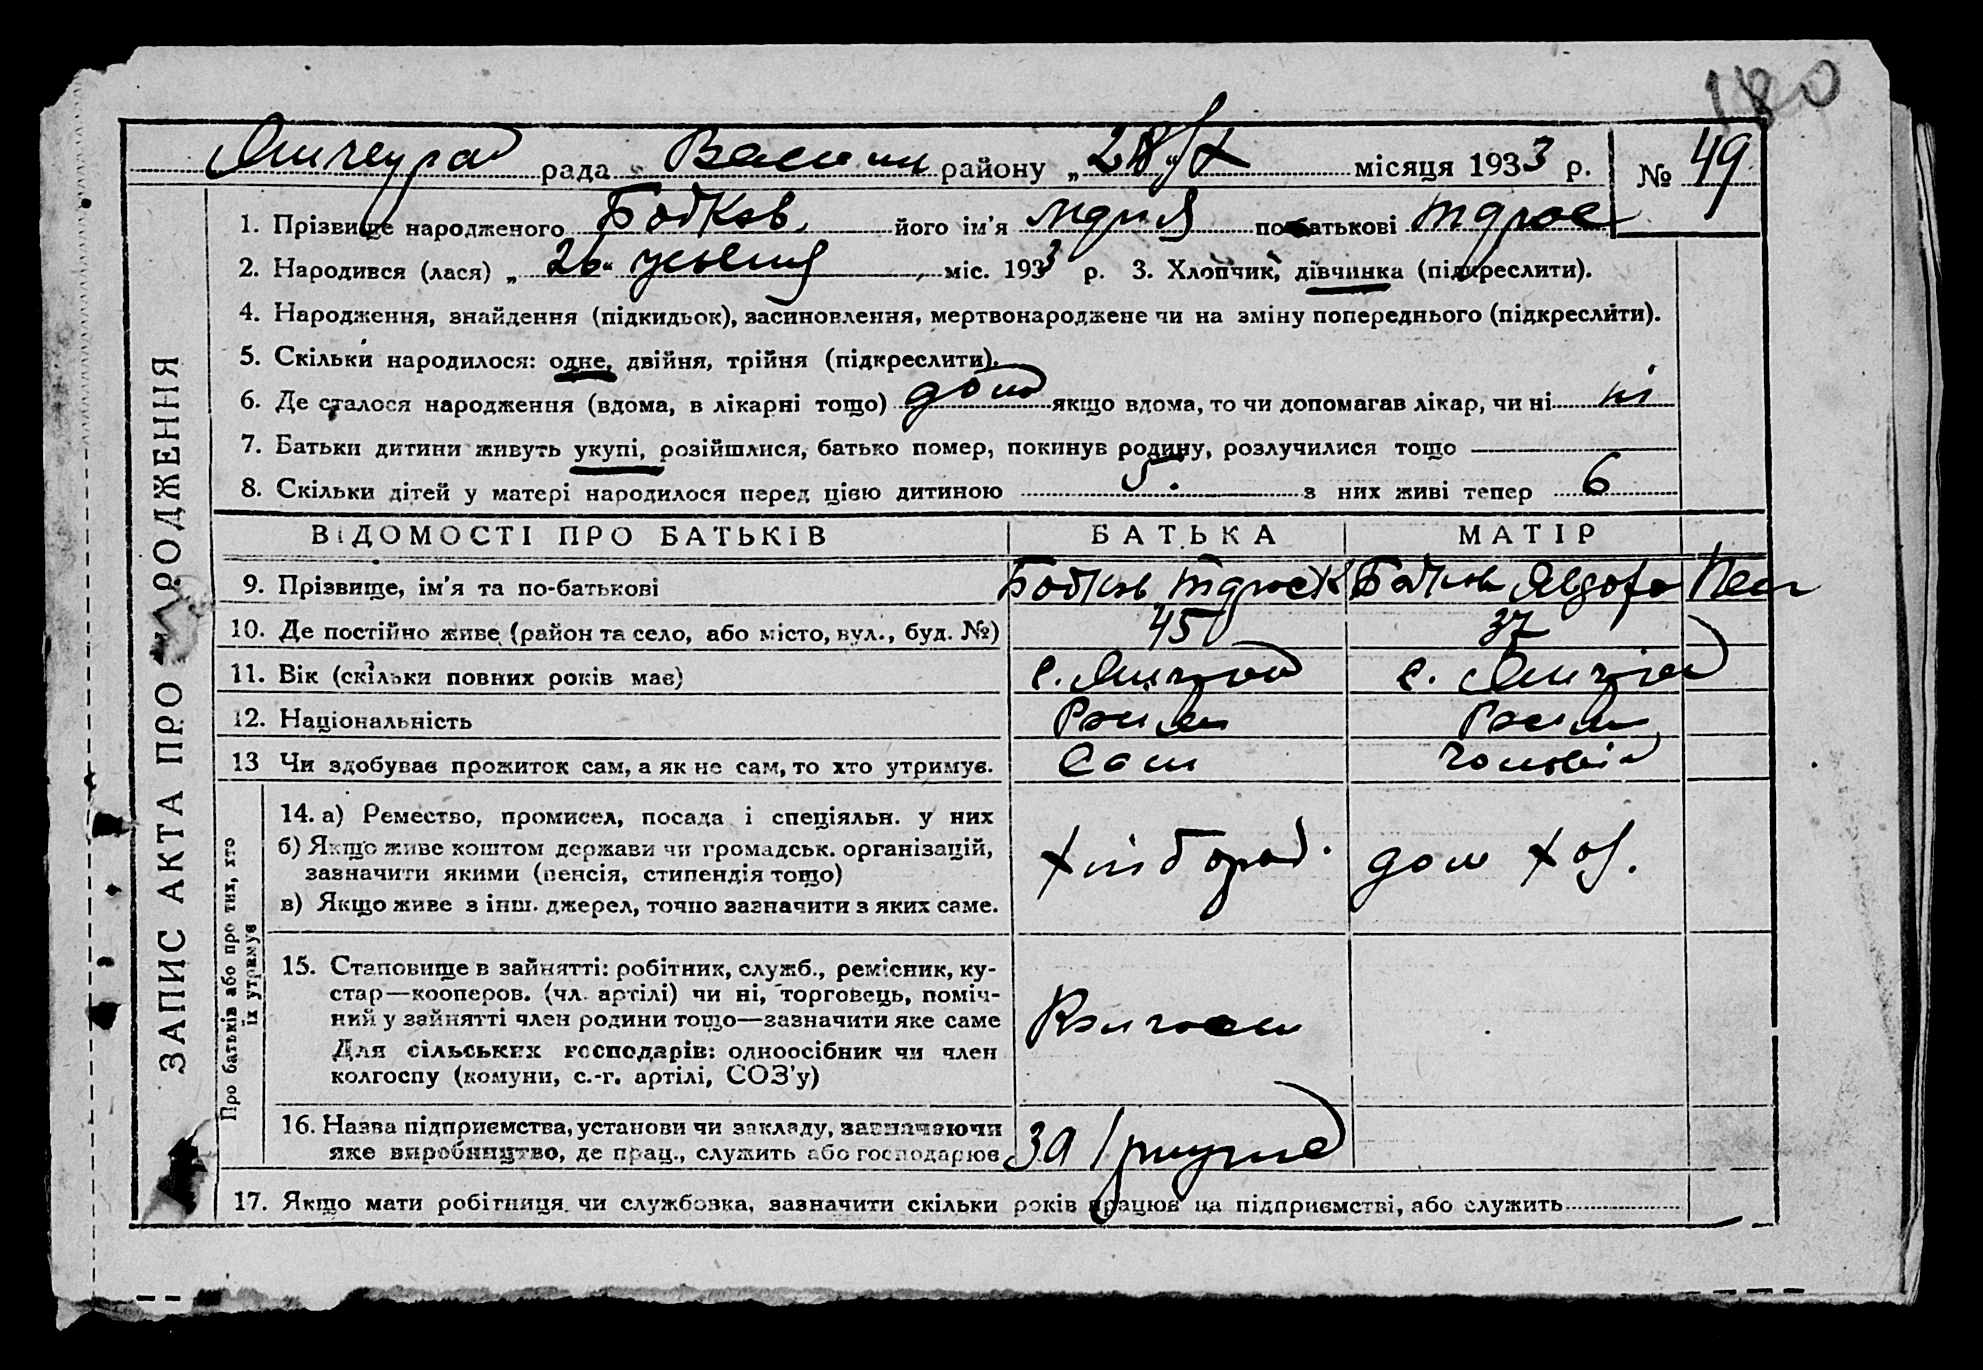 180
рада района „28/X місяця 1933 р. № 49
1. Прізвище народженого Бодков його ім'я по батькові
2. Народився (лася) „26“ міс. 1933 р. 3. Хлопчик, дівчинка (підкреслити).
4. Народження, знайдення (підкидьок), засиновлення, мертвонароджене чи на зміну попереднього (підкреслити).
5. Скільки народилося: одне, двійня, трійня (підкреслити).
6. Де сталося народження (вдома, в лікарні тощо) дома якщо вдома, то чи допомагав лікар, чи ні ні
7. Батьки дитини живуть укупі, розійшлися, батько помер, покинув родину, розлучилися тощо
8. Скільки дітей у матері народилося перед цією дитиною 5. з них живі тепер 6
ВІДОМОСТІ ПРО БАТЬКІВ БАТЬКА МАТІР
9. Прізвище, ім'я та по-батькові Бодков
10. Де постійно живе (район та село, або місто, вул., буд. №) 45 37
11. Вік (скільки повних років має) с. с.
12. Національність
13 Чи здобував прожиток сам, а як не сам, то хто утримує. Сам чоловік
14. а) Ремество, промисел, посада і спеціяльн. у них
б) Якщо живе коштом держави чи громадськ. організацій,
зазначити якими (пенсія, стипендія тощо)
в) Якщо живе з інш. джерел, точно зазначити з яких саме.
хлібороб. дом хоз.
15. Становище в зайнятті: робітник, служб., ремісник, ку-
стар—кооперов. (чл. артілі) чи ні, торговець, поміч-
ний у зайнятті член родини тощо—зазначити яке саме
Для сільських господарів: одноосібник чи член
колгоспу (комуни, с.-г. артілі, СОЗ'у)
16. Назва підприємства, установи чи закладу, зазначаючи
яке виробництво, де прац., служить або господарює
17. Якщо мати робітниця чи службовка, зазначити скільки років працює на підприємстві, або служить
ЗАПИС АКТА ПРО НАРОДЖЕННЯ
Про батьків або про тих, хто
їх утримує